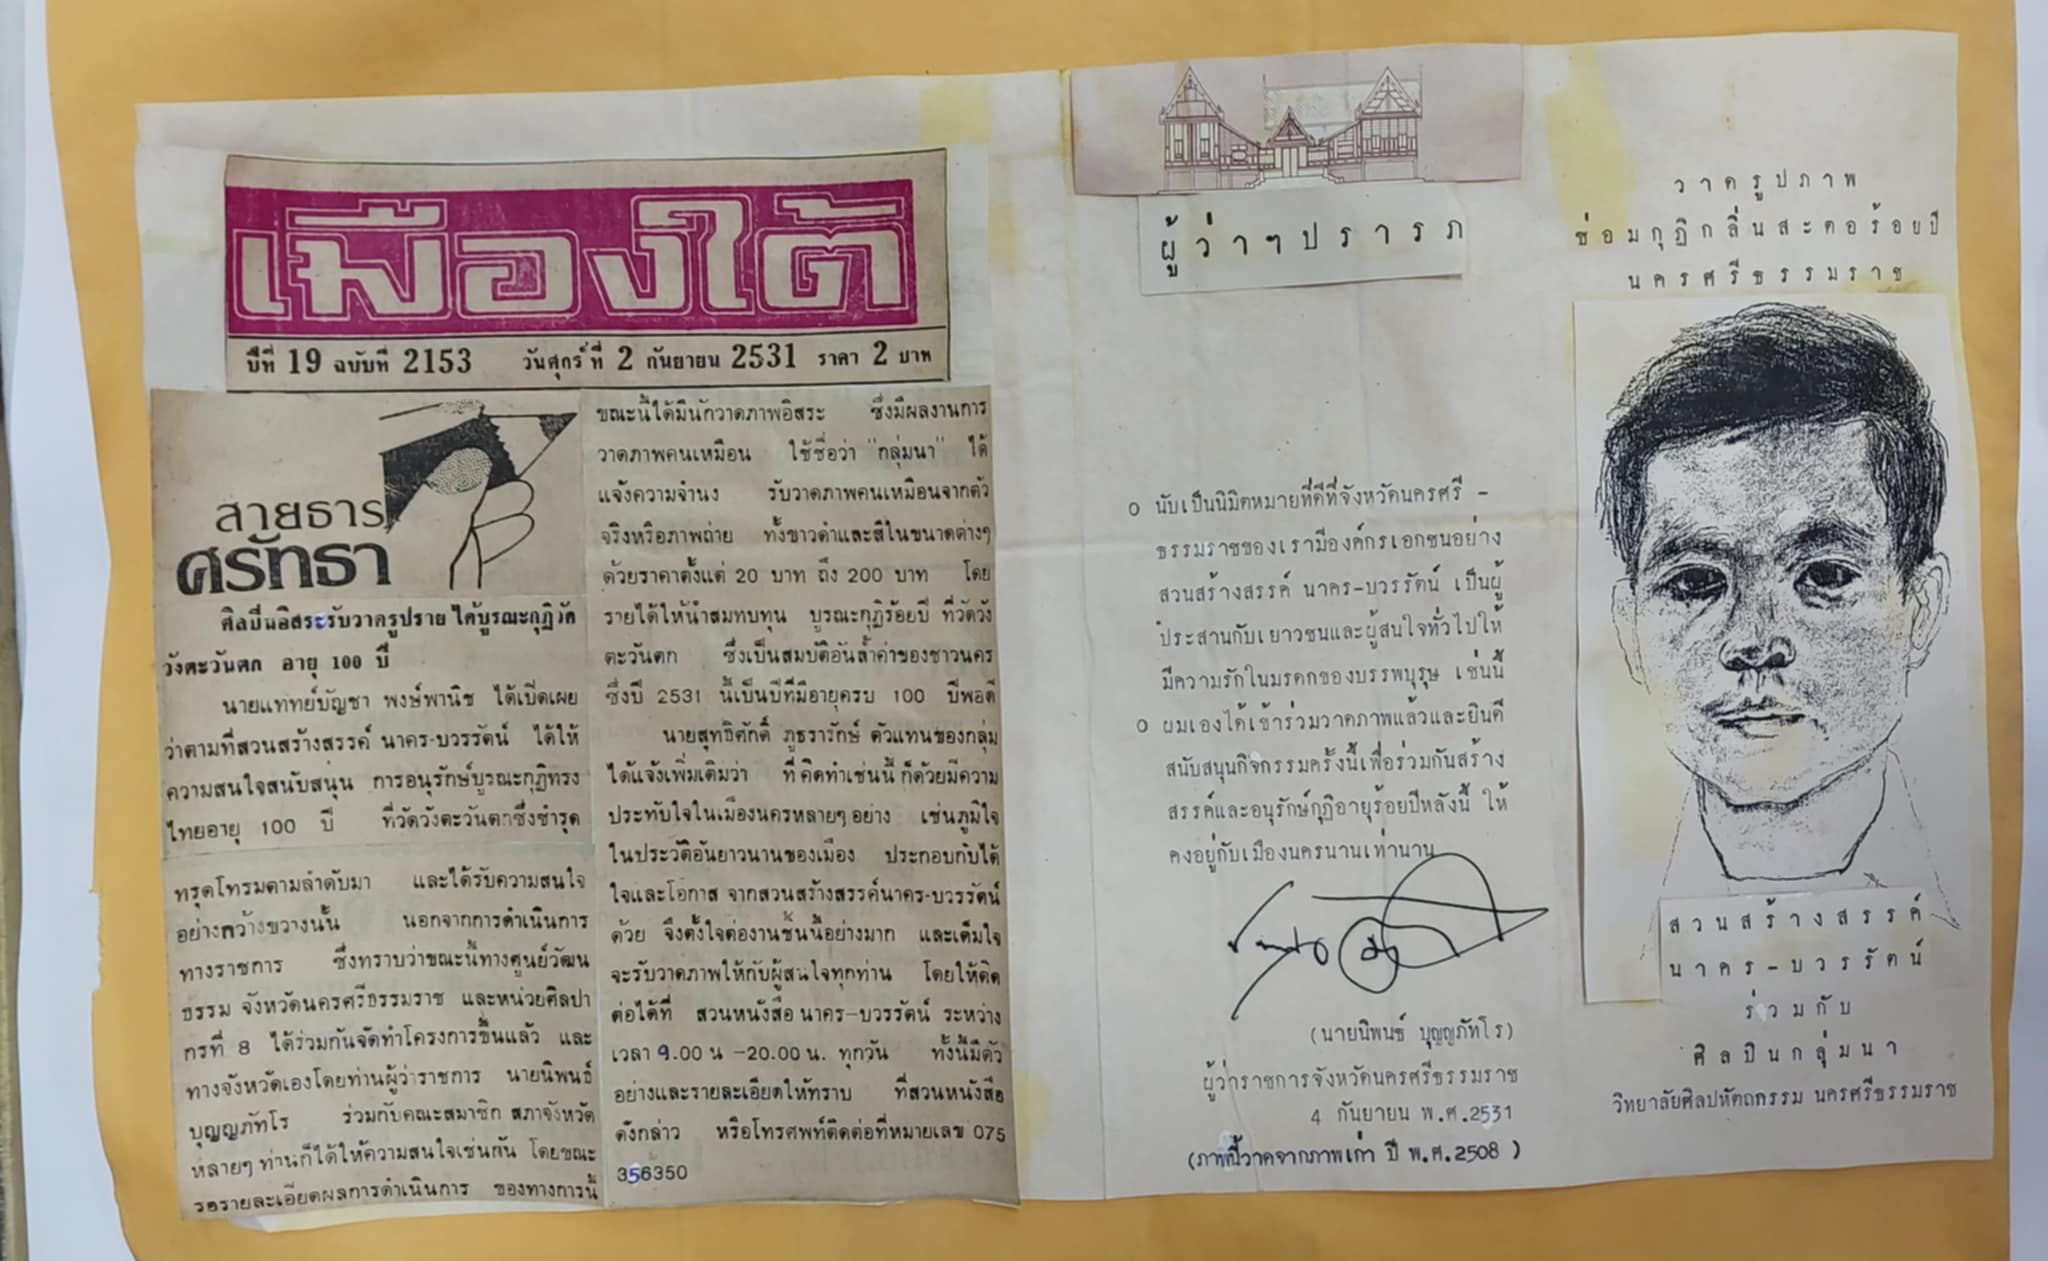 เมืองใต้
ปีที่ 19 ฉบับที่ 2153 วันศุกร์ที่ 2 กันยายน 2531 ราคา 2 บาท
สายธาร
ศรัทธา
ศิลปินอิสระรับวาดรูปราย ได้บูรณะกุฏิวัด
วังตะวันตก อายุ 100 ปี
นายแพทย์บัญชา พงษ์พานิช ได้เปิดเผย
ว่าตามที่สวนสร้างสรรค์ นาคร-บวรรัตน์ ได้ให้
ความสนใจสนับสนุน การอนุรักษ์บูรณะกุฏิทรง
ไทยอายุ 100 ปี ที่วัดวังตะวันตกซึ่งชำรุด
ทรุดโทรมตามลำดับมา และได้รับความสนใจ
อย่างกว้างขวางนั้น นอกจากการดำเนินการ
ทางราชการ ซึ่งทราบว่าขณะนี้ทางศูนย์วัฒน
ธรรม จังหวัดนครศรีธรรมราช และหน่วยศิลปา
กรที่ 8 ได้ร่วมกันจัดทำโครงการขึ้นแล้ว และ
ทางจังหวัดเองโดยท่านผู้ว่าราชการ นายนิพนธ์
บุญญภัทโร ร่วมกับคณะสมาชิก สภาจังหวัด
หลายๆ ท่านก็ได้ให้ความสนใจเช่นกัน โดยขณะ
รอรายละเอียดผลการดำเนินการ ของทางการนี้
ขณะนี้ได้มีนักวาดภาพอิสระ ซึ่งมีผลงานการ
วาดภาพคนเหมือน ใช้ชื่อว่า "กลุ่มนา" ได้
แจ้งความจำนง รับวาดภาพคนเหมือนจากตัว
จริงหรือภาพถ่าย ทั้งขาวดำและสีในขนาดต่างๆ
ด้วยราคาตั้งแต่ 20 บาท ถึง 200 บาท โดย
รายได้ให้นำสมทบทุน บูรณะกุฏิร้อยปี ที่วัดวัง
ตะวันตก ซึ่งเป็นสมบัติอันล้ำค่าของชาวนคร
ซึ่งปี 2531 นี้เป็นปีที่มีอายุครบ 100 ปีพอดี
นายสุทธิศักดิ์ ภูธรารักษ์ ตัวแทนของกลุ่ม
ได้แจ้งเพิ่มเติมว่า ที่คิดทำเช่นนี้ ก็ด้วยมีความ
ประทับใจในเมืองนครหลายๆ อย่าง เช่นภูมิใจ
ในประวัติอันยาวนานของเมือง ประกอบกับได้
ใจและโอกาส จากสวนสร้างสรรค์นาคร-บวรรัตน์
ด้วย จึงตั้งใจต่องานชิ้นนี้อย่างมาก และเต็มใจ
จะรับวาดภาพให้กับผู้สนใจทุกท่าน โดยให้ติด
ต่อได้ที่ สวนหนังสือ นาคร-บวรรัตน์ ระหว่าง
เวลา 9.00 น -20.00 น. ทุกวัน ทั้งนี้มีตัว
อย่างและรายละเอียดให้ทราบ ที่สวนหนังสือ
ดังกล่าว หรือโทรศพท์ติดต่อที่หมายเลข 075
356350
ผู้ว่าๆปรารภ
๐ นับเป็นนิมิตหมายที่ดีที่จังหวัดนครศรี -
ธรรมราชของเรามีองค์กรเอกชนอย่าง
สวนสร้างสรรค์ นาคร-บวรรัตน์ เป็นผู้
ประสานกับเยาวชนและผู้สนใจทั่วไปให้
มีความรักในมรดกของบรรพบุรุษ เช่นนี้
๐ ผมเองได้เข้าร่วมวาดภาพแล้วและยินดี
สนับสนุนกิจกรรมครั้งนี้เพื่อร่วมกันสร้าง
สรรค์และอนุรักษ์กุฏิอายุร้อยปีหลังนี้ ให้
คงอยู่กับเมืองนครนานเท่านาน
(นายนิพนธ์ บุญญภัทโร)
ผู้ว่าราชการจังหวัดนครศรีธรรมราช
4 กันยายน พ.ศ.2531
(ภาพนี้วาดจากภาพเก่า ปี พ.ศ.2508 )
วาดรูปภาพ
ซ่อมกุฏิกลิ่นสะตอร้อยปี
นครศรีธรรมราช
สวนสร้างสรรค์
นาคร-บวรรัตน์
ร่วมกับ
ศิลปินกลุ่มนา
วิทยาลัยศิลปหัตถกรรม นครศรีธรรมราช